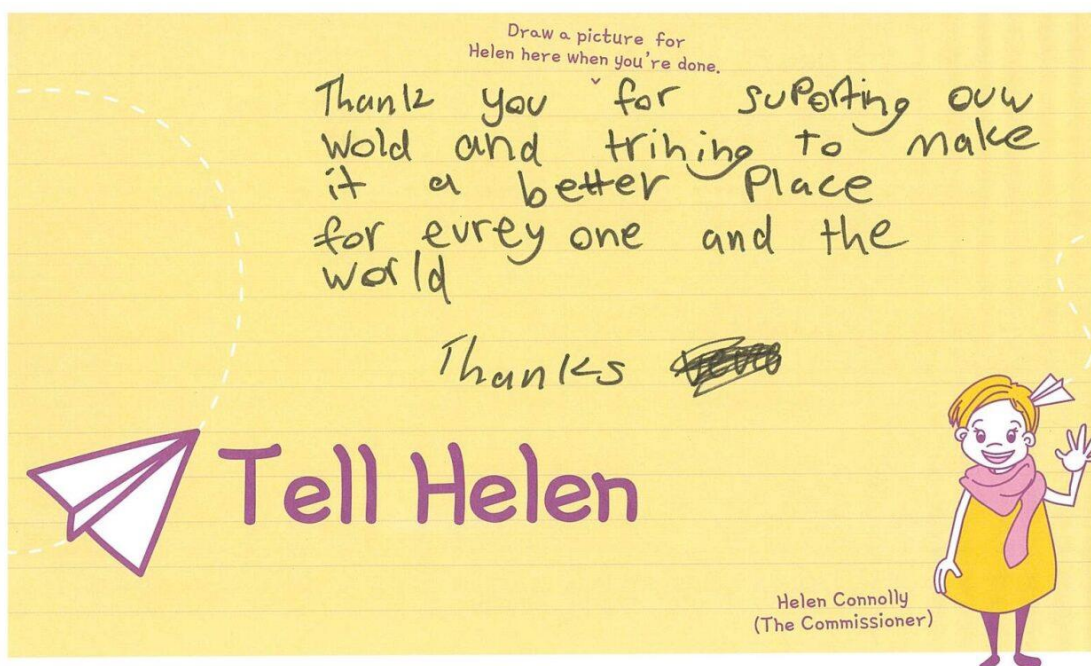 Draw a picture for
Helen here when you're done.
Thank you for suPorting ouw
wold and trihing To make
it a better Place
for evrey one and the
world
Thanks
Tell Helen
Helen Connolly
(The Commissioner)